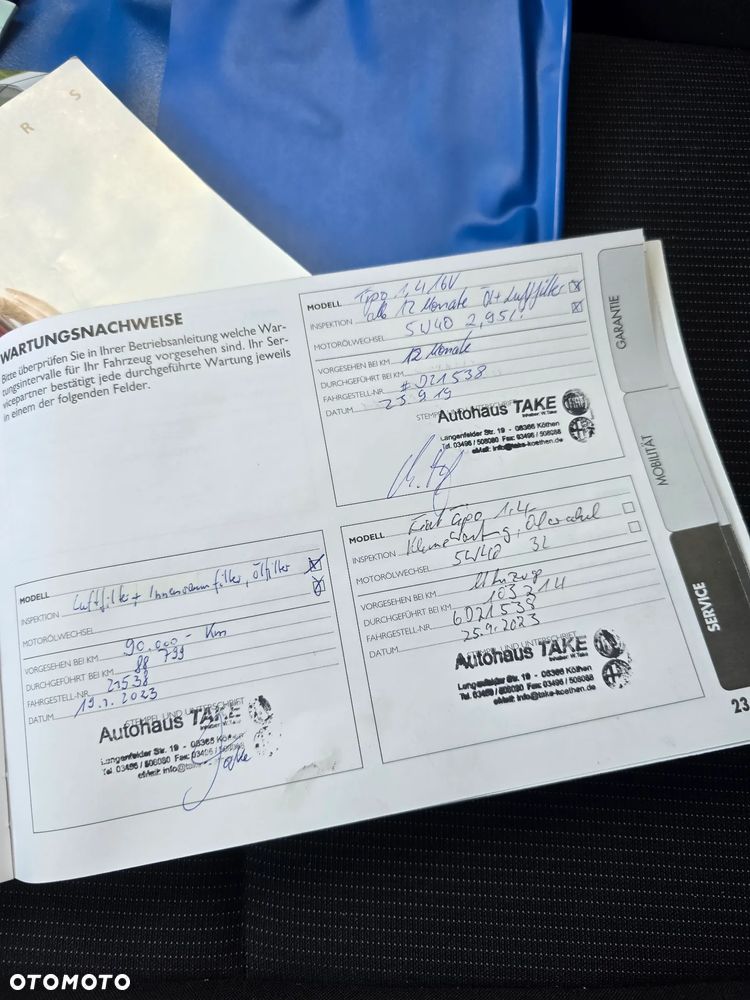 R S
WARTUNGSNACHWEISE
Bitte überprüfen Sie in Ihrer Betriebsanleitung welche War-
tungsintervalle für Ihr Fahrzeug vorgesehen sind. Ihr Ser-
vicepartner bestätigt jede durchgeführte Wartung jeweils
in einem der folgenden Felder.
MODELL Tipo 1,4 16V
INSPEKTION alle 12 Monate Öl+Luftfilter
MOTORÖLWECHSEL 5W40 2,95L
VORGESEHEN BEI KM 12 Monate
DURCHGEFÜHRT BEI KM
FAHRGESTELL-NR. # 021538
DATUM 25.9.19
STEMPEL UND UNTERSCHRIFT
Autohaus TAKE
Inhaber: W.Take
Langenfelder Str. 19 - 06366 Köthen
Tel. 03496 / 508080 Fax: 03496/508088
eMail: info@take-koethen.de
MODELL
INSPEKTION Luftfilter + Innenraumfilter, Ölfilter
MOTORÖLWECHSEL
VORGESEHEN BEI KM 90.000 - Km
DURCHGEFÜHRT BEI KM 88 799
FAHRGESTELL-NR. 21538
DATUM 2023
STEMPEL UND UNTERSCHRIFT
Autohaus TAKE
Inhaber: W.Take
Langenfelder Str. 19 - 06366 Köthen
Tel. 03496 / 508080 Fax: 03496
eMail: info@take
Take
MODELL Fiat Tipo 1.4
INSPEKTION
MOTORÖLWECHSEL 5W40 3L
VORGESEHEN BEI KM
DURCHGEFÜHRT BEI KM 103 214
FAHRGESTELL-NR. 6021538
DATUM 25.9.2023
STEMPEL UND UNTERSCHRIFT
Autohaus TAKE
Inhaber: W.Take
Langenfelder Str. 19 - 06366 Köthen
Tel. 03496 / 508080 Fax: 03496/508088
eMail: info@take-koethen.de
GARANTIE
MOBILITÄT
SERVICE
23
OTOMOTO